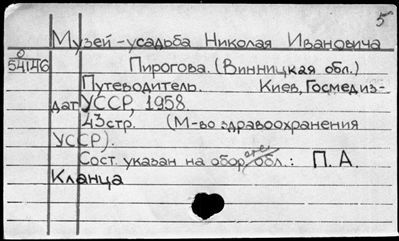 5
Музей-усадьба Николая Ивановича
0
54146 Пирогова. (Винницкая обл.)
Путеводитель. Киев, Госмедиз-
дат УССР, 1958.
43 стр. (М-во здравоохранения
УССР).
Сост. указан на обор. обл.: П. А.
Кланца